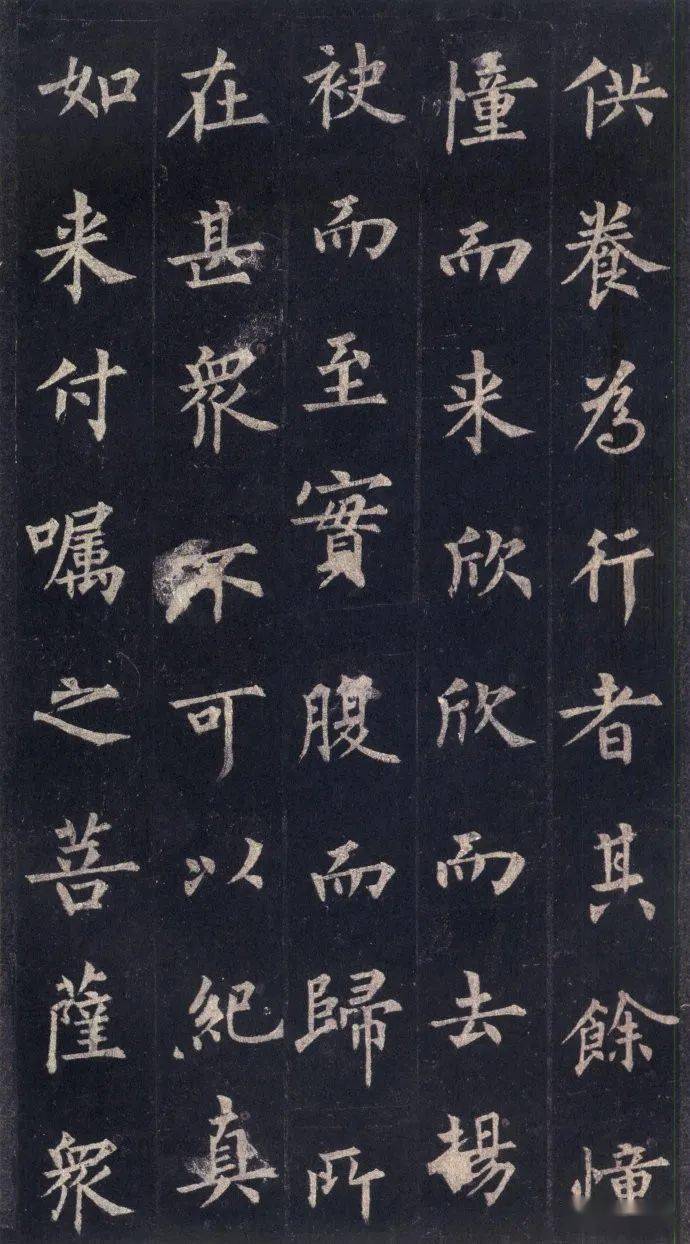 供養為行者其餘憧
憧而来欣欣而去揚
袂而至實腹而歸所
在甚衆不可以紀真
如来付嘱之菩薩衆